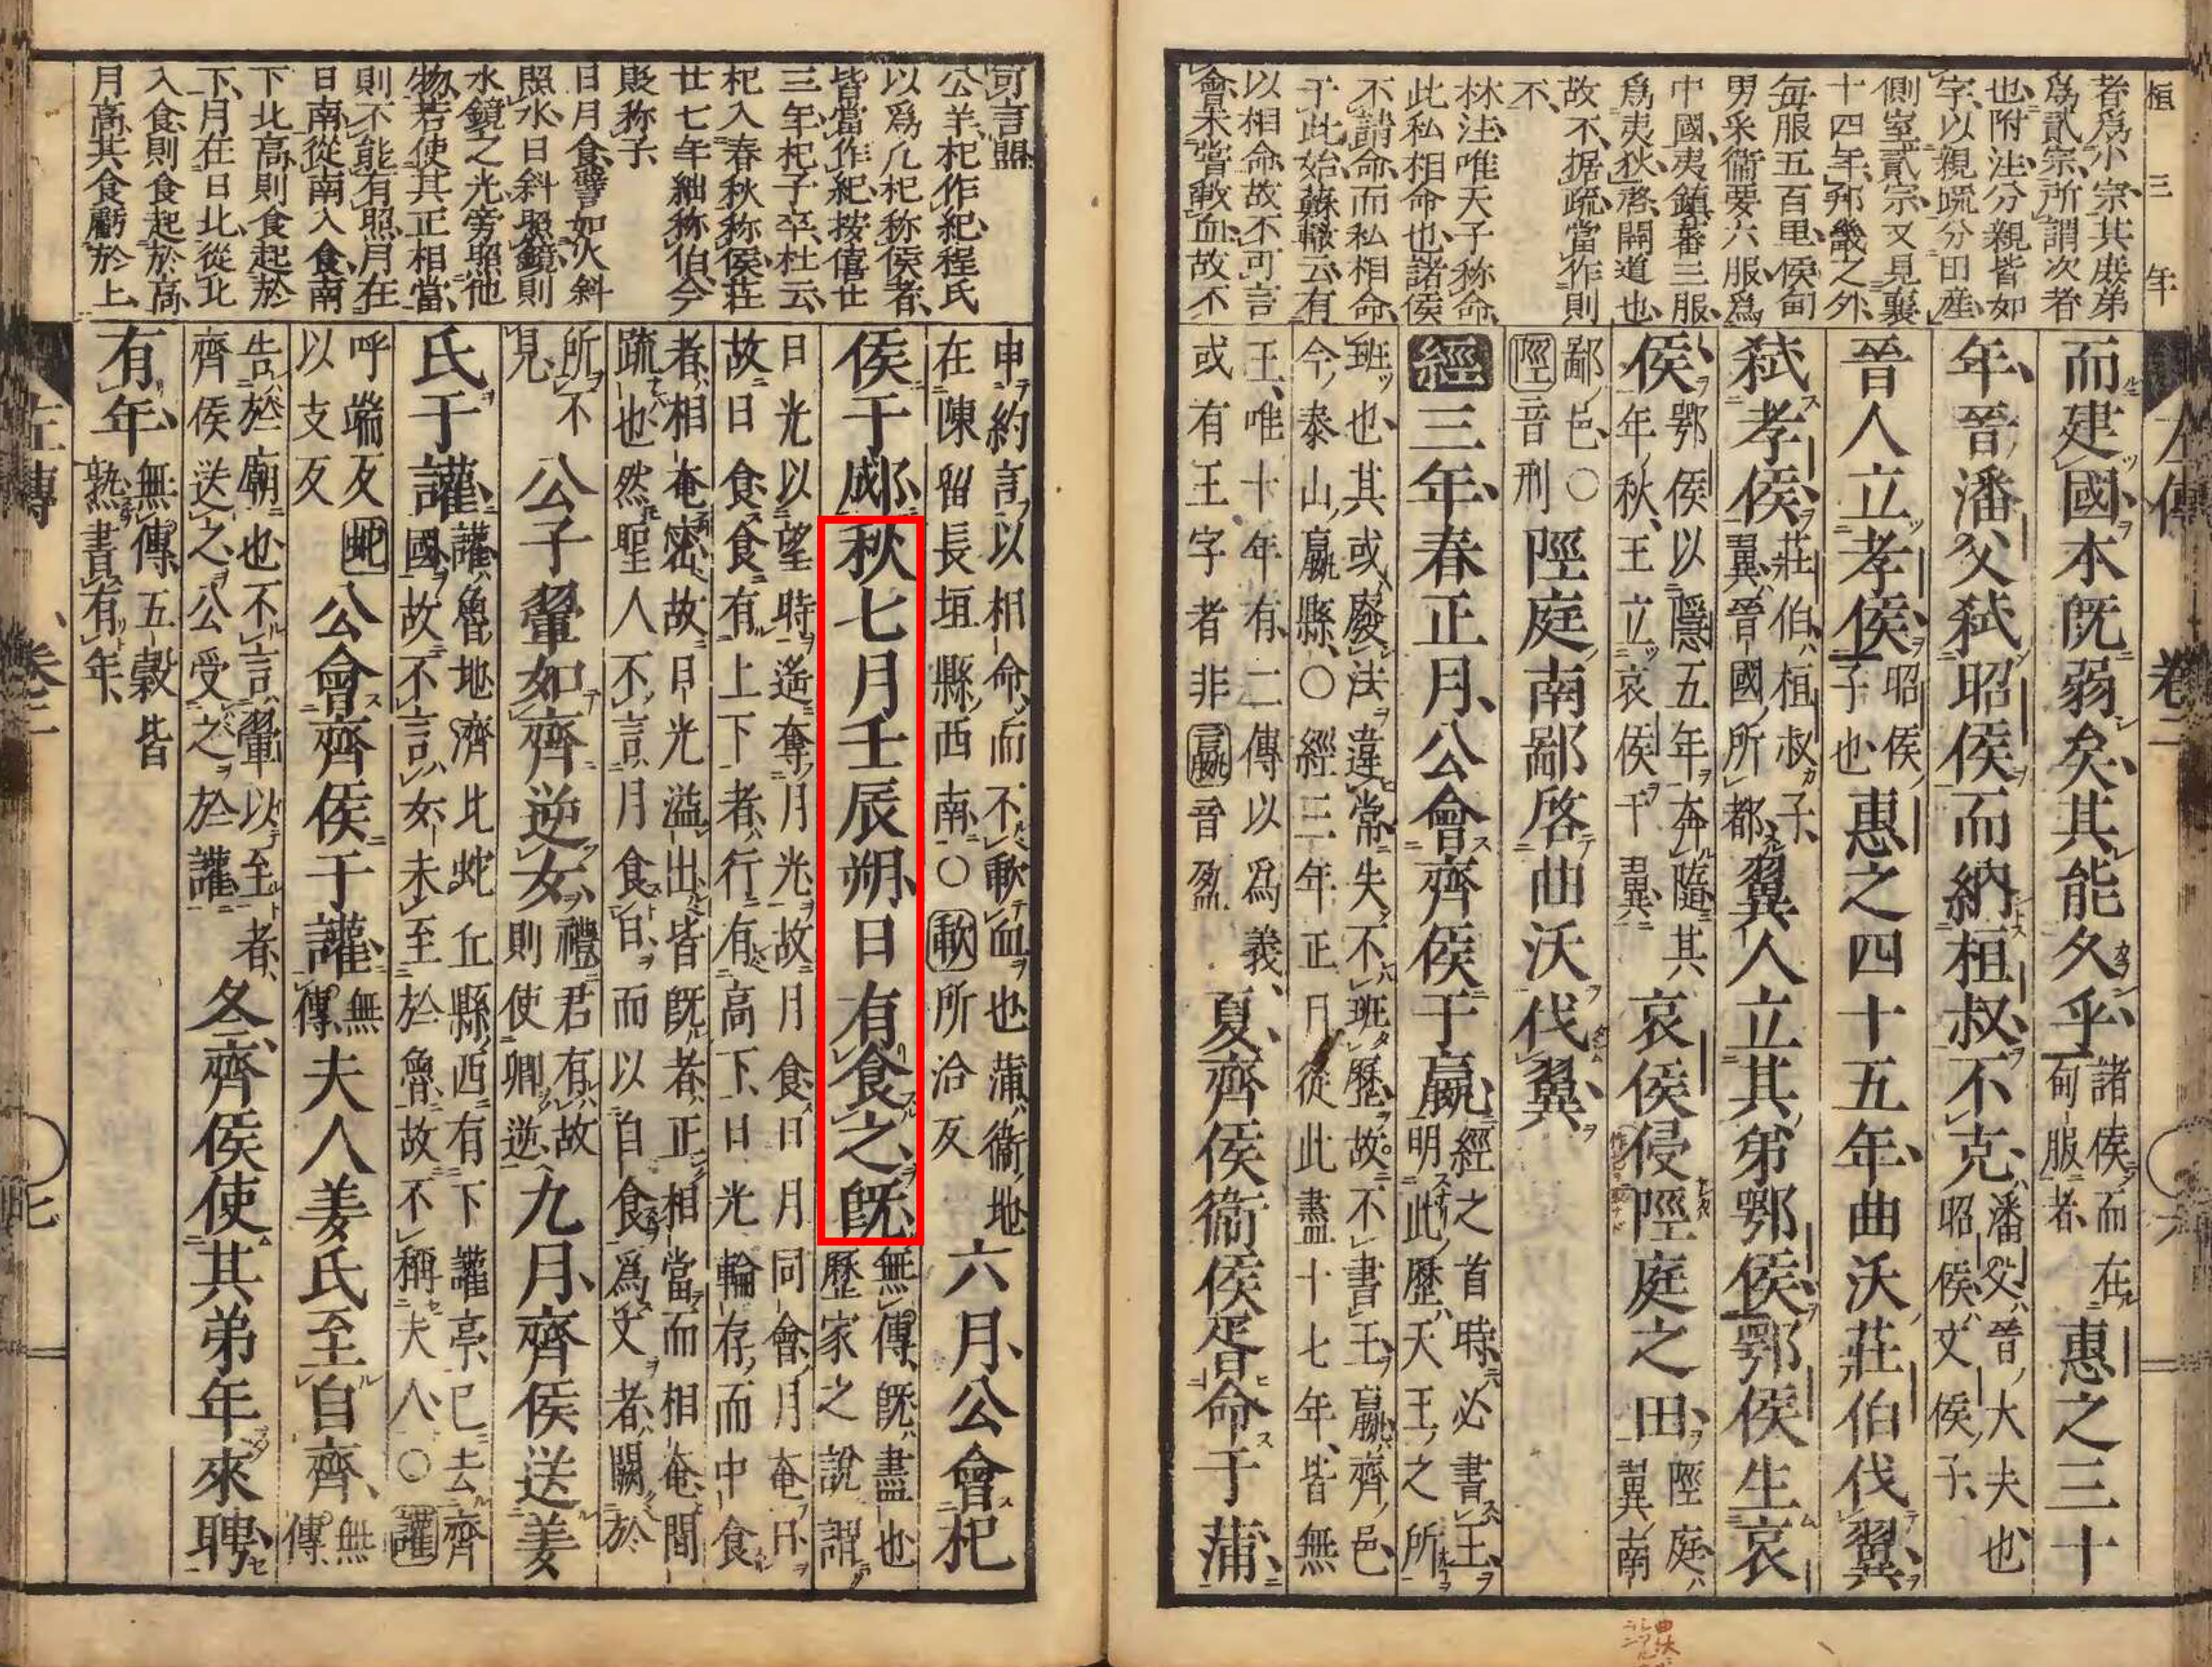 桓三年
者爲小宗其庶弟
爲貳宗所謂次者
也附注分親皆如
字以親疏分田産
側室貳宗又見襄
十四年邦畿之外
每服五百里侯甸
男采衞要六服爲
中國夷鎮蕃三服
爲夷狄啓開道也
故不据疏當作則
不
林注唯天子称命
此私相命也諸侯
不請命而私相命
于此始蘇轍云有
以相命故不可言
會未嘗歃血故不
左傳 卷二
而建國本既弱矣其能久乎諸侯而在甸服者惠之三十
年晉潘父弑昭侯而納桓叔不克潘父晉大夫也昭侯文侯子
晉人立孝侯昭侯子也惠之四十五年曲沃莊伯伐翼
弑孝侯莊伯桓叔子翼晉國所都翼人立其弟鄂侯鄂侯生哀
侯鄂侯以隱五年奔隨其年秋王立哀侯于翼哀侯侵陘庭之田陘庭翼南
鄙邑○陘音刑陘庭南鄙啓曲沃伐翼
經三年春正月公會齊侯于嬴經之首時必書王明此歷天王之所
班也其或廢法違常失不班歷故不書王嬴齊邑今泰山嬴縣○經三年正月從此盡十七年皆無
王唯十年有二傳以爲義或有王字者非嬴音盈夏齊侯衞侯胥命于蒲
可言盟
公羊杞作紀程氏
以爲凡杞称侯者
皆當作紀按僖廿
三年杞子卒杜云
杞入春秋称侯莊
廿七年絀称伯今
貶称子
日月食譬如火斜
照水日斜照鏡則
水鏡之光旁照他
物若使其正相當
則不能有照月在
日南從南入食南
下北高則食起於
下月在日北從北
入食則食起於高
月高其食虧於上
申約言以相命而不歃血也蒲衞地在陳留長垣縣西南○歃所洽反六月公會杞
侯于郕秋七月壬辰朔日有食之既無傳既盡也歷家之說謂
日光以望時遙奪月光故月食日月同會月奄日故日食食有上下者行有高下日光輪存而中食
者相奄密故日光溢出皆既者正相當而相奄間疏也然聖人不言月食日而以自食爲文者闕於
所不見公子翬如齊逆女禮君有故則使卿逆九月齊侯送姜
氏于讙讙魯地濟北蛇丘縣西有下讙亭已去齊國故不言女未至於魯故不稱夫人○讙
呼端反以支反蛇公會齊侯于讙無傳夫人姜氏至自齊無傳
告於廟也不言翬以至者齊侯送之公受之於讙冬齊侯使其弟年來聘
有年無傳五穀皆熟書有年
左傳 卷二 七